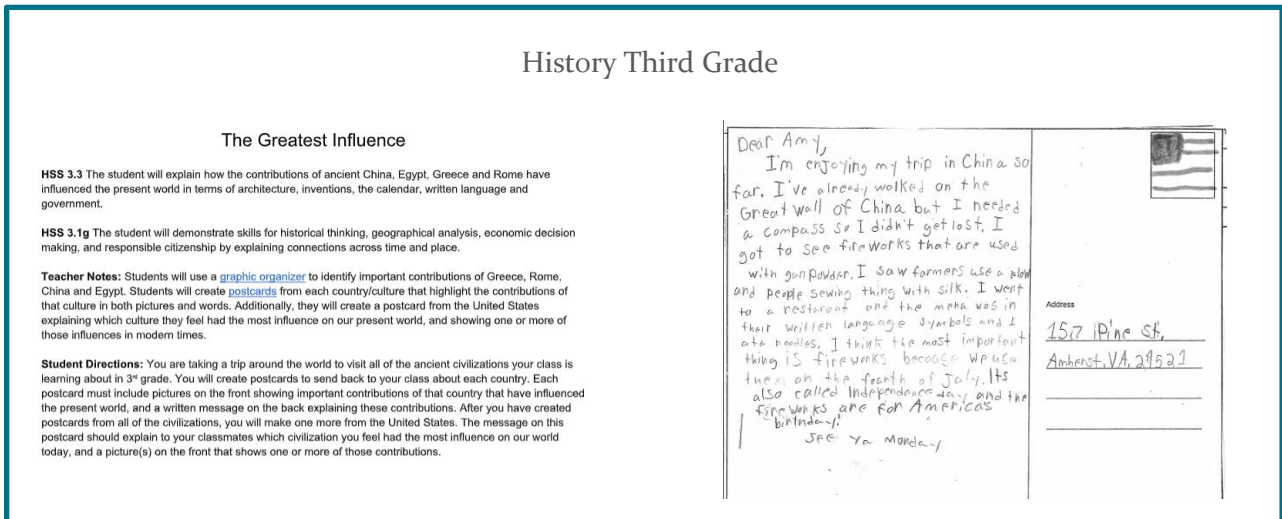 History Third Grade
The Greatest Influence
HSS 3.3 The student will explain how the contributions of ancient China, Egypt, Greece and Rome have
influenced the present world in terms of architecture, inventions, the calendar, written language and
government.
HSS 3.1g The student will demonstrate skills for historical thinking, geographical analysis, economic decision
making, and responsible citizenship by explaining connections across time and place.
Teacher Notes: Students will use a graphic organizer to identify important contributions of Greece, Rome,
China and Egypt. Students will create postcards from each country/culture that highlight the contributions of
that culture in both pictures and words. Additionally, they will create a postcard from the United States
explaining which culture they feel had the most influence on our present world, and showing one or more of
those influences in modern times.
Student Directions: You are taking a trip around the world to visit all of the ancient civilizations your class is
learning about in 3rd grade. You will create postcards to send back to your class about each country. Each
postcard must include pictures on the front showing important contributions of that country that have influenced
the present world, and a written message on the back explaining these contributions. After you have created
postcards from all of the civilizations, you will make one more from the United States. The message on this
postcard should explain to your classmates which civilization you feel had the most influence on our world
today, and a picture(s) on the front that shows one or more of those contributions.
Dear Amy,
I'm enjoying my trip in China so
far. I've already walked on the
Great wall of China but I needed
a compass so I didn't get lost. I
got to see fireworks that are used
with gunpowder. I saw farmers use a plow
and people sewing thing with silk. I went
to a restarant and the menu vas in
their written language symbols and I
ate noodles. I think the most important
thing is fireworks becouse we use
them on the fourth of July. Its
also called Independence day and the
fireworks are for America's
birthday!
See Ya Monday
Address
Pine St.
Amherst, VA.